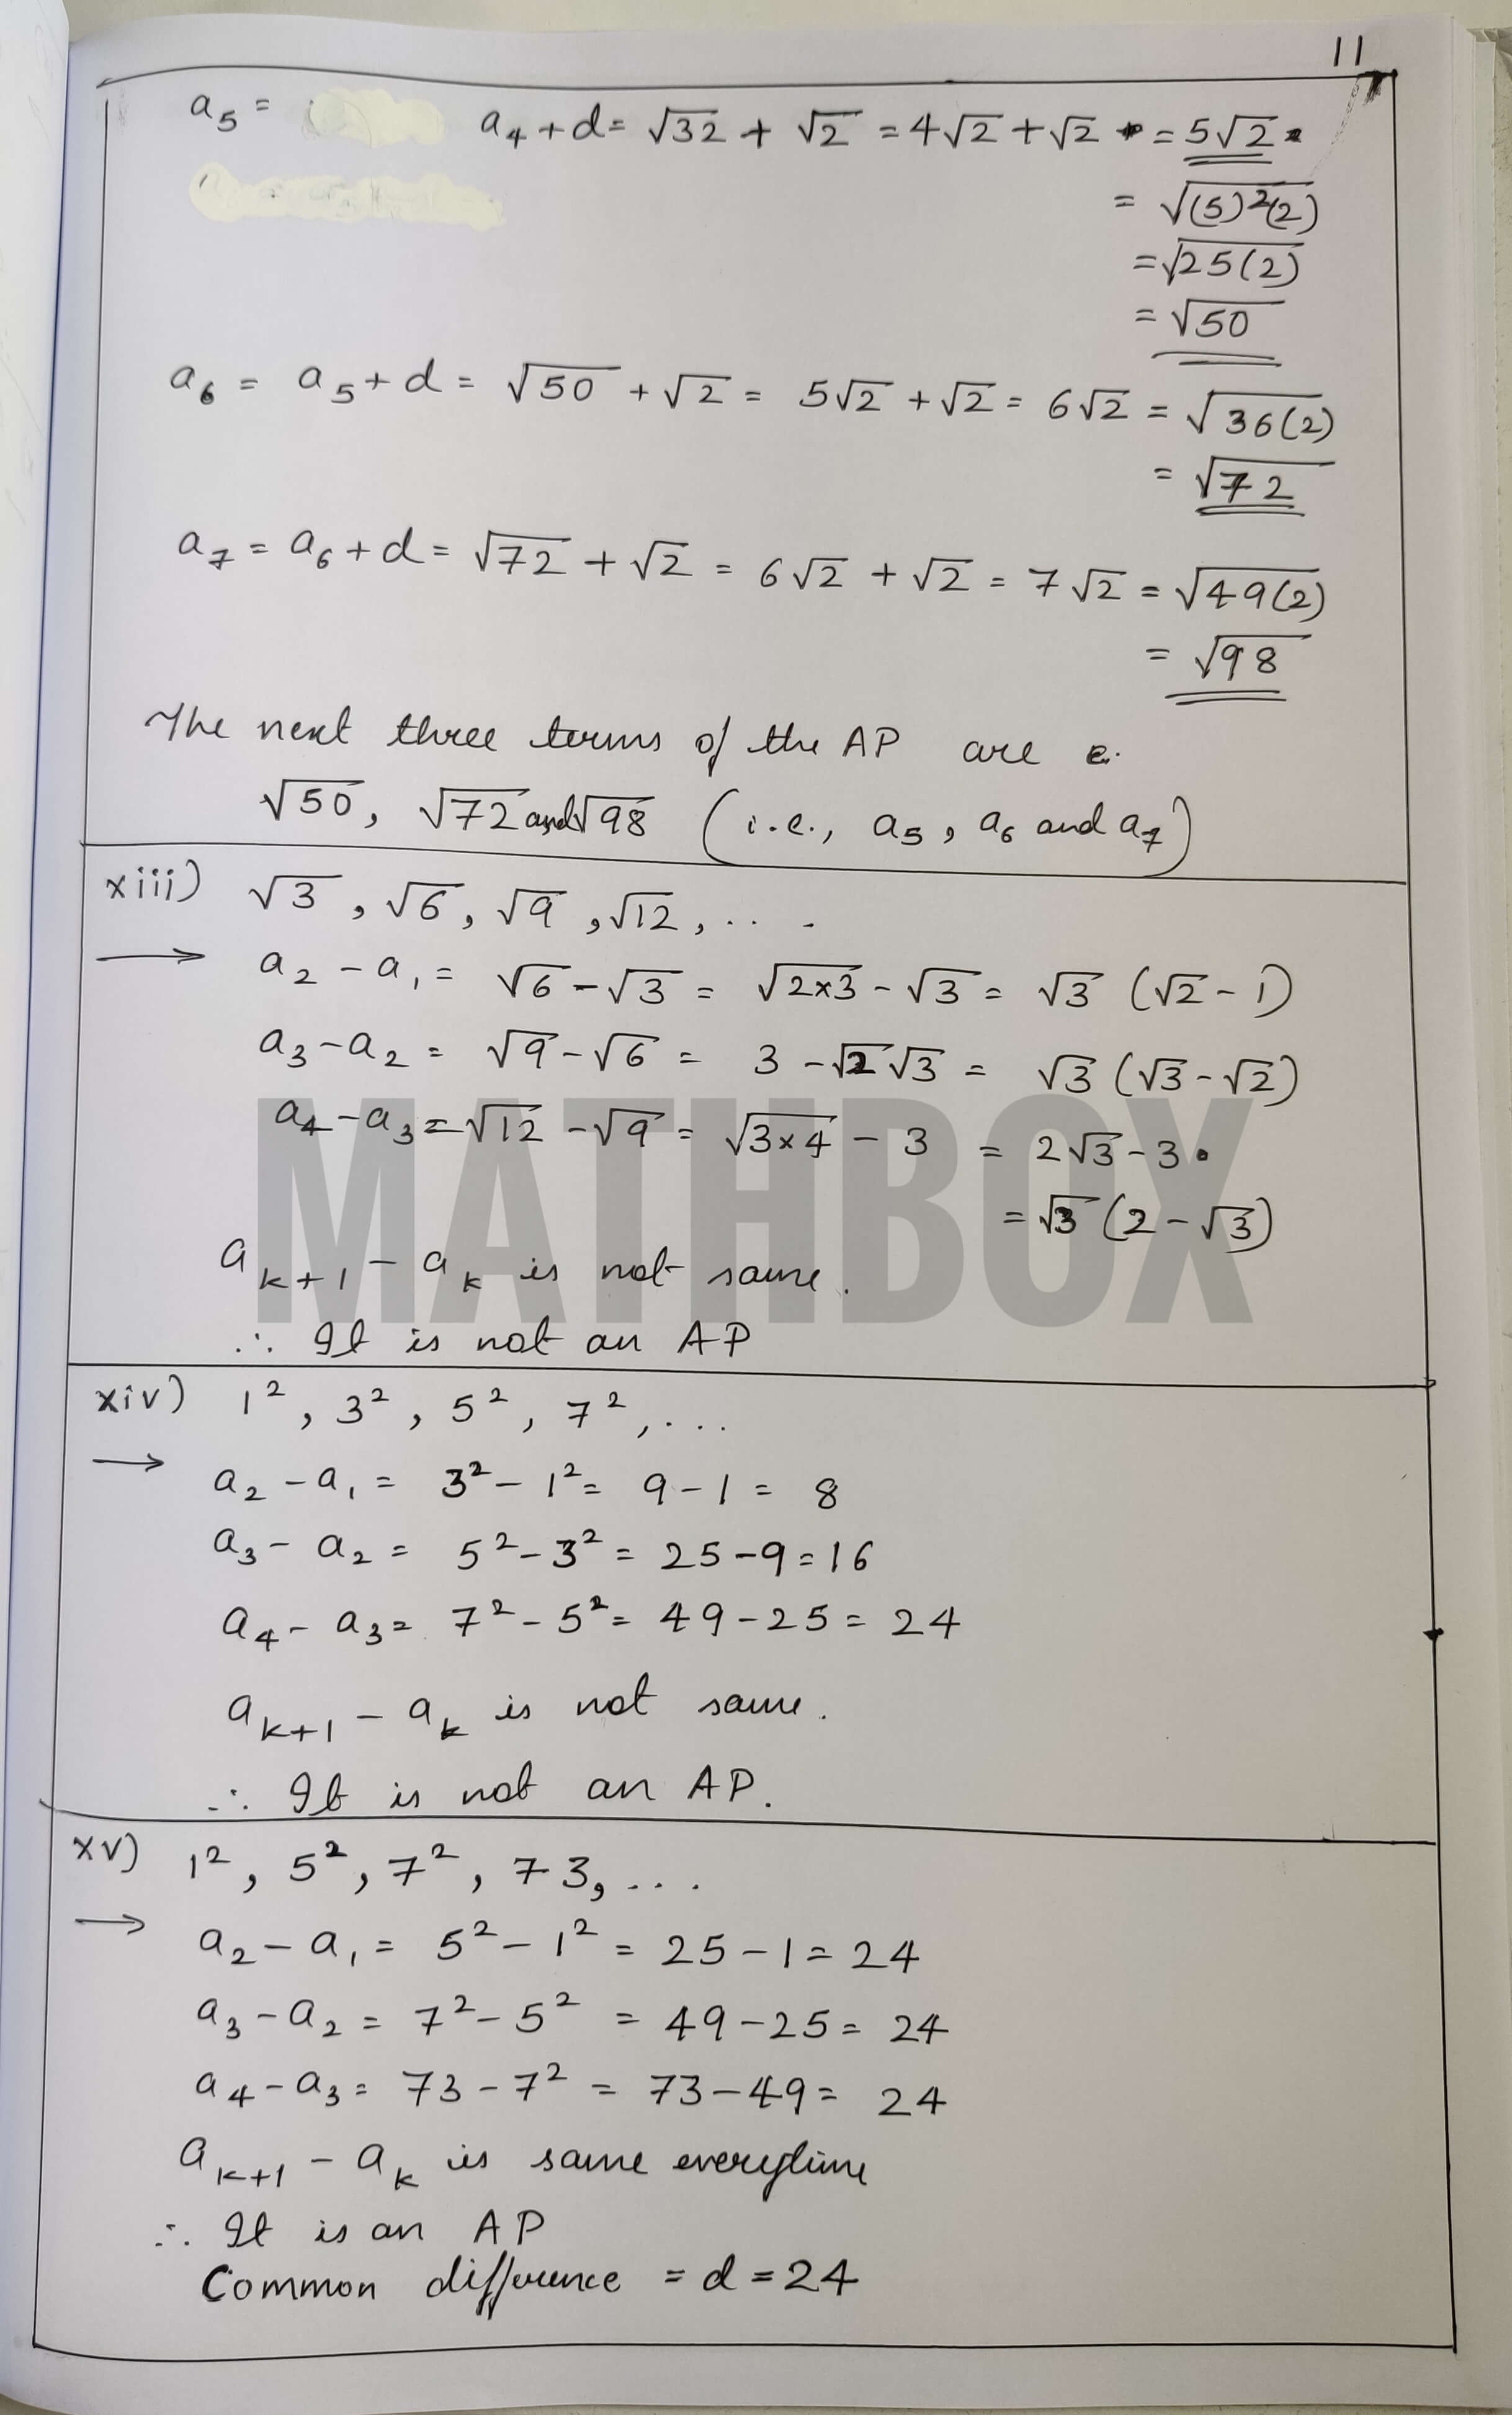 11
a₅ = a₄ + d = √32 + √2 = 4√2 + √2 = 5√2
= √(5)²(2)
= √25(2)
= √50
a₆ = a₅ + d = √50 + √2 = 5√2 + √2 = 6√2 = √36(2)
= √72
a₇ = a₆ + d = √72 + √2 = 6√2 + √2 = 7√2 = √49(2)
= √98
The next three terms of the AP are
√50, √72 and √98 (i.e., a₅, a₆ and a₇)
xiii) √3, √6, √9, √12, ...
→ a₂ - a₁ = √6 - √3 = √2×3 - √3 = √3 (√2 - 1)
a₃ - a₂ = √9 - √6 = 3 - √2√3 = √3 (√3 - √2)
a₄ - a₃ = √12 - √9 = √3×4 - 3 = 2√3 - 3
= √3 (2 - √3)
MATHBOX
aₖ₊₁ - aₖ is not same.
∴ It is not an AP
xiv) 1², 3², 5², 7², ...
→ a₂ - a₁ = 3² - 1² = 9 - 1 = 8
a₃ - a₂ = 5² - 3² = 25 - 9 = 16
a₄ - a₃ = 7² - 5² = 49 - 25 = 24
aₖ₊₁ - aₖ is not same.
∴ It is not an AP.
xv) 1², 5², 7², 73, ...
→ a₂ - a₁ = 5² - 1² = 25 - 1 = 24
a₃ - a₂ = 7² - 5² = 49 - 25 = 24
a₄ - a₃ = 73 - 7² = 73 - 49 = 24
aₖ₊₁ - aₖ is same everytime
∴ It is an AP
Common difference = d = 24